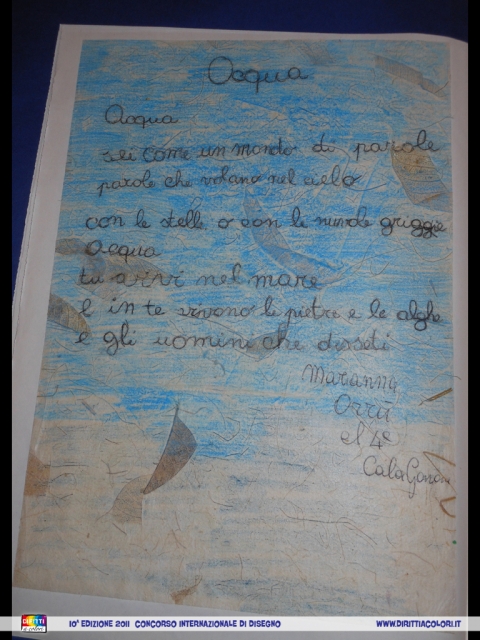 Acqua
Acqua
sei come un mondo di parole
parole che volano nel cielo
con le stelle o con le nuvole griggie
Acqua
tu vivi nel mare
E in te vivono le pietre e le alghe
e gli uomini che disseti
Marianna
Orrù
cl 4ª
CalaGonone
10ª EDIZIONE 2011 CONCORSO INTERNAZIONALE DI DISEGNO
WWW.DIRITTIACOLORI.IT